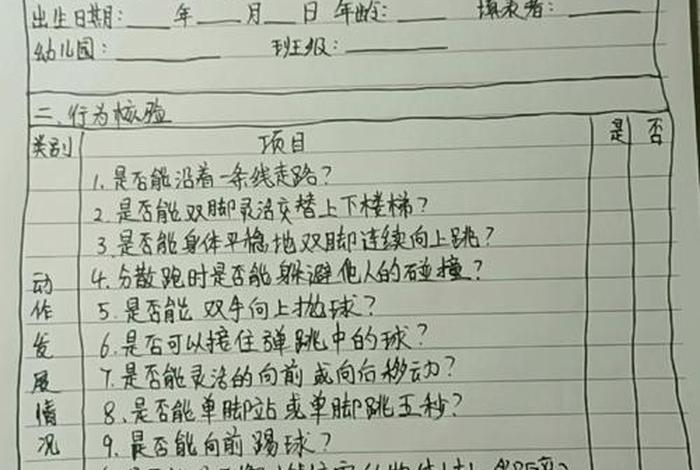 出生日期：____年____月____日 年龄：____ 填表者：____
幼儿园：____ 班级：____
二、行为核验
类别 项目 是 否
1. 是否能沿着一条线走路？
2. 是否能双脚灵活交替上下楼梯？
3. 是否能身体平稳地双脚连续向上跳？
动 4. 分散跑时是否能躲避他人的碰撞？
作 5. 是否能双手向上抛球？
发 6. 是否可以接住弹跳中的球？
展 7. 是否能灵活的向前或向后移动？
情 8. 是否能单脚站或单脚跳五秒？
况 9. 是否能向前踢球？